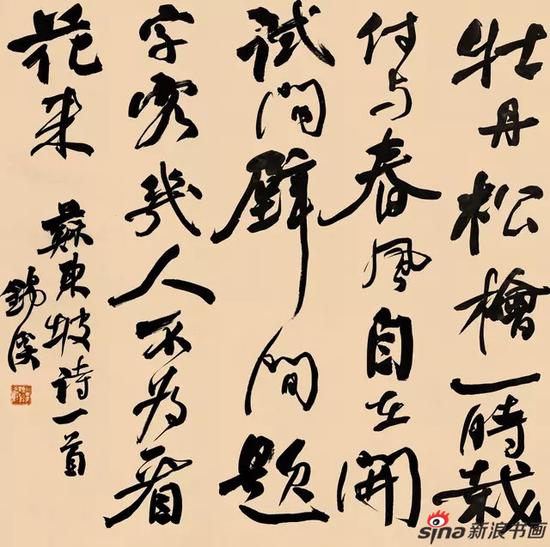 牡丹松檜一時栽
付与春風自在開
試問壁間題
字客幾人不為看
花来
蘇東坡诗一首
錫
sina 新浪书画